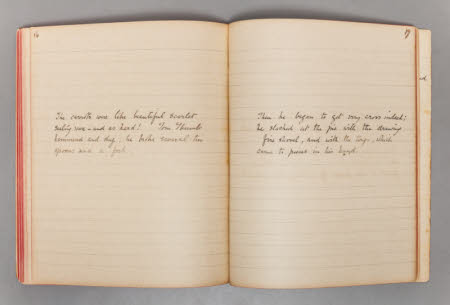 16
The carrots were like beautiful scarlet
sealing wax – and as hard! Tom Thumb
hammered and dug; he broke several tin
spoons and a fork
17
Then he began to get very cross indeed;
he slashed at the pie with the drawing
fire shovel, and with the tongs, which
came to pieces in his hand.